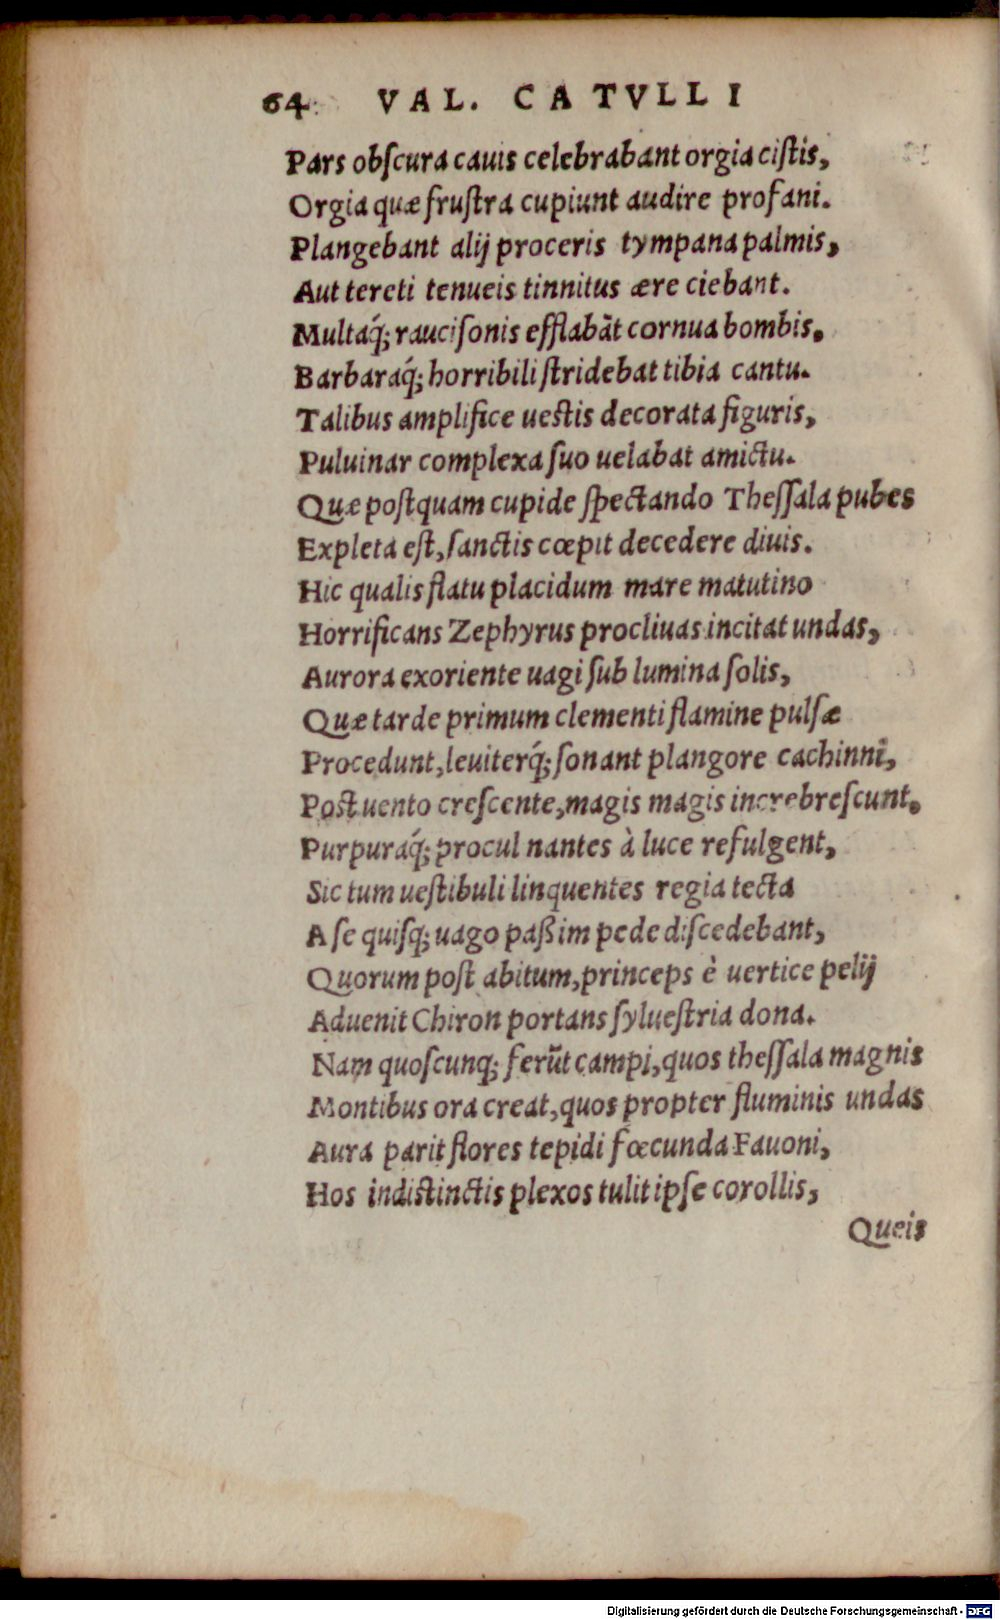 64 VAL. CATVLLI
Pars obſcura cauis celebrabant orgia ciſtis,
Orgia quæ fruſtra cupiunt audire profani.
Plangebant alij proceris tympana palmis,
Aut tereti tenueis tinnitus ære ciebant.
Multaq́; rauciſonis efflabāt cornua bombis.
Barbaraq́; horribili ſtridebat tibia cantu.
Talibus amplifice ueſtis decorata figuris,
Puluinar complexa ſuo uelabat amictu.
Quæ poſtquam cupide ſpectando Theſſala pubes
Expleta eſt, ſanctis cœpit decedere diuis.
Hic qualis flatu placidum mare matutino
Horrificans Zephyrus procliuas incitat undas,
Aurora exoriente uagi ſub lumina ſolis,
Quæ tarde primum clementi flamine pulſæ
Procedunt, leuiterq́; ſonant plangore cachinni,
Poſt uento creſcente, magis magis increbreſcunt.
Purpuraq́; procul nantes à luce refulgent,
Sic tum ueſtibuli linquentes regia tecta
A ſe quiſq; uago paßim pede diſcedebant,
Quorum poſt abitum, princeps è uertice pelij
Aduenit Chiron portans ſylueſtria dona.
Nam quoſcunq; ferūt campi, quos theſſala magnis
Montibus ora creat, quos propter fluminis undas
Aura parit flores tepidi fœcunda Fauoni,
Hos indiſtinctis plexos tulit ipſe corollis,
Queis
Digitalisierung gefördert durch die Deutsche Forschungsgemeinschaft - DFG